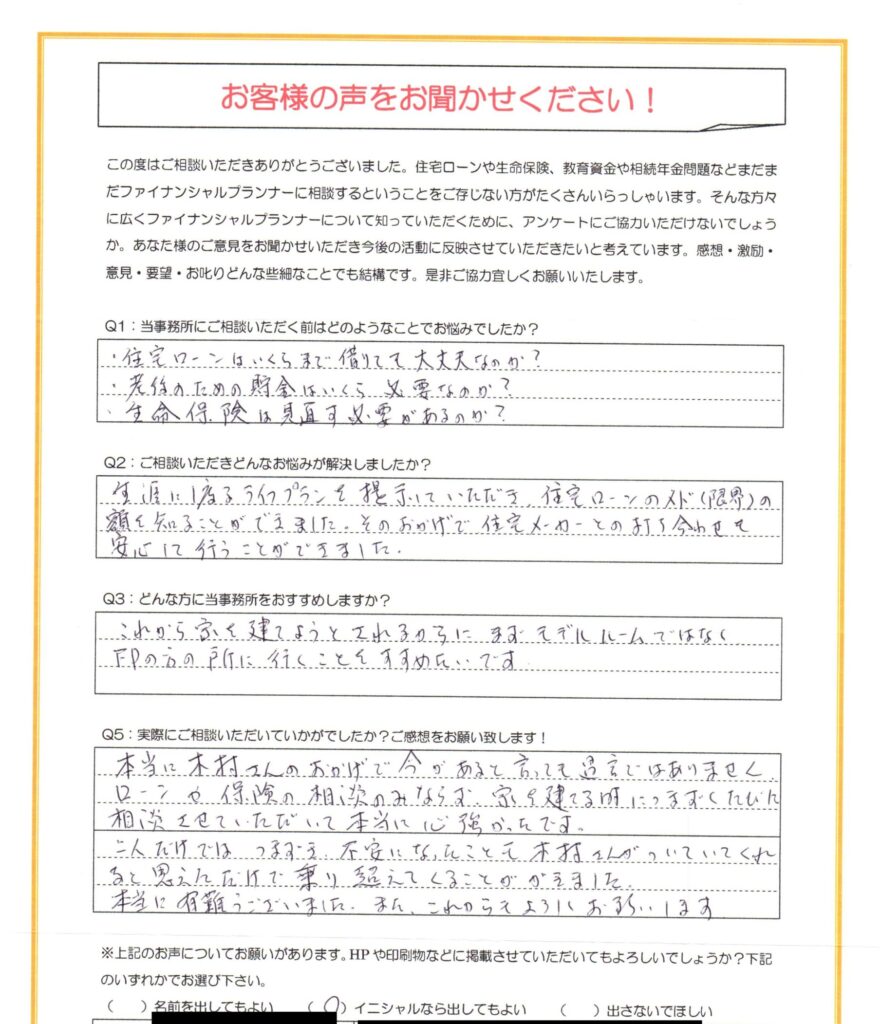 お客様の声をお聞かせください！
この度はご相談いただきありがとうございました。住宅ローンや生命保険、教育資金や相続年金問題などまだま
だファイナンシャルプランナーに相談するということをご存じない方がたくさんいらっしゃいます。そんな方々
に広くファイナンシャルプランナーについて知っていただくために、アンケートにご協力いただけないでしょう
か。あなた様のご意見をお聞かせいただき今後の活動に反映させていただきたいと考えています。感想・激励・
意見・要望・お叱りどんな些細なことでも結構です。是非ご協力宜しくお願いいたします。
Q1：当事務所にご相談いただく前はどのようなことでお悩みでしたか？
・住宅ローンはいくらまで借りても大丈夫なのか？
・老後のための貯金はいくら必要なのか？
・生命保険は見直す必要があるのか？
Q2：ご相談いただきどんなお悩みが解決しましたか？
生涯に渡るライフプランを提示していただき、住宅ローンのメド(限界)の
額を知ることができました。そのおかげで住宅メーカーとの打ち合わせも
安心して行うことができました。
Q3：どんな方に当事務所をおすすめしますか？
これから家を建てようとされる方にまずモデルルームではなく
FPの方の所に行くことをすすめたいです
Q5：実際にご相談いただいていかがでしたか？ご感想をお願い致します！
本当に木村さんのおかげで今があると言っても過言ではありません。
ローンや保険の相談のみならず、家を建てる時につまずくたびに
相談させていただいて本当に心強かったです。
二人だけではつまずき、不安になったことも木村さんがついていてくれ
ると思えただけで乗り超えてくることができました。
本当に有難うございました。また、これからもよろしくお願いします
※上記のお声についてお願いがあります。HPや印刷物などに掲載させていただいてもよろしいでしょうか？下記
のいずれかでお選び下さい。
（　）名前を出してもよい　（○）イニシャルなら出してもよい　（　）出さないでほしい